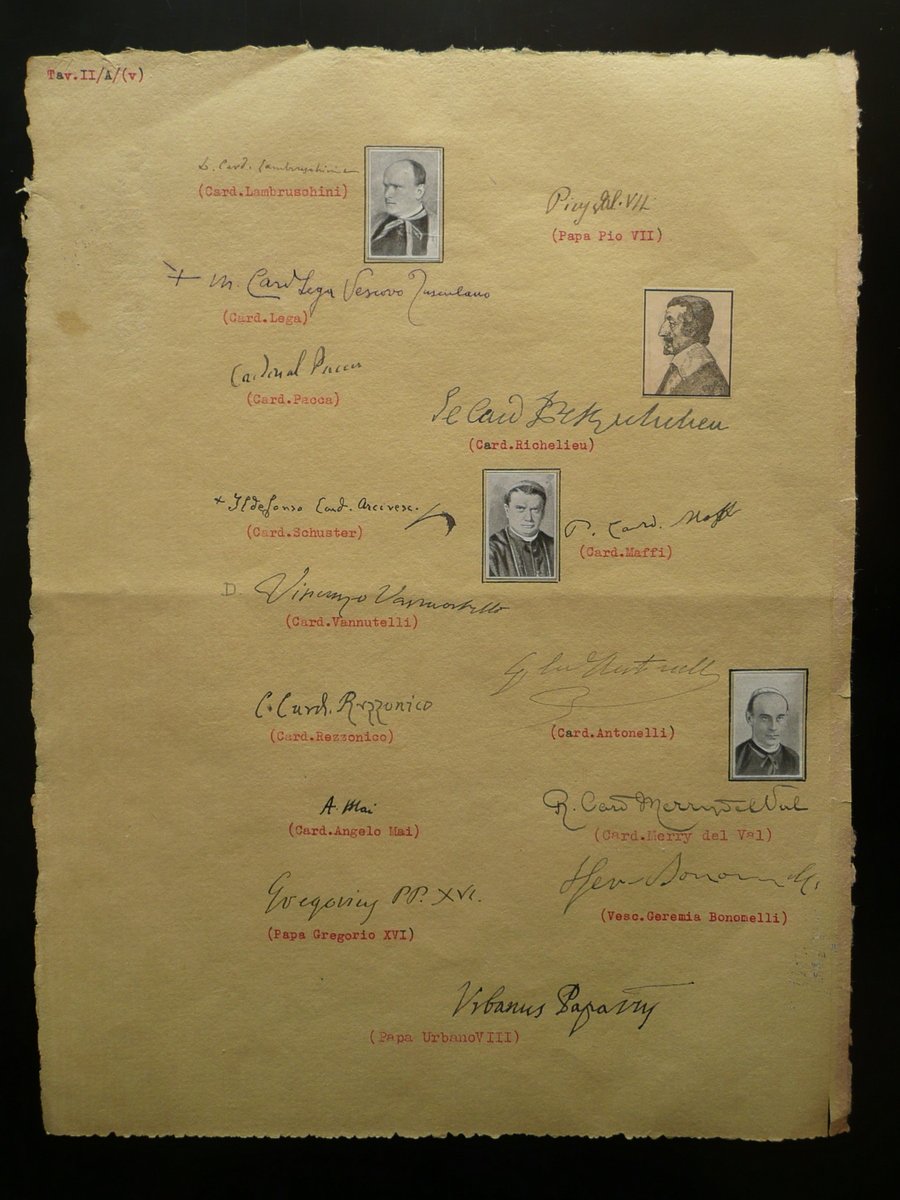 Tav.II/A/(v)
L. Card. Lambruschini
(Card.Lambruschini)
(Papa Pio VII)
+ M. Card Lega Vescovo Tusculano
(Card.Lega)
Cardinal Pacca
(Card.Pacca)
Le Card De Richelieu
(Card.Richelieu)
+ Ildefonso Card. Arcivesc.
(Card.Schuster)
P. Card. Maffi
(Card.Maffi)
D. Vincenzo Vannutelli
(Card.Vannutelli)
Antonelli
(Card.Antonelli)
C. Card. Rezzonico
(Card.Rezzonico)
A. Mai
(Card.Angelo Mai)
R. Card Merry del Val
(Card.Merry del Val)
Gregorius PP. XVI.
(Papa Gregorio XVI)
Bonomelli
(Vesc.Geremia Bonomelli)
Urbanus Papa VIII
(Papa UrbanoVIII)